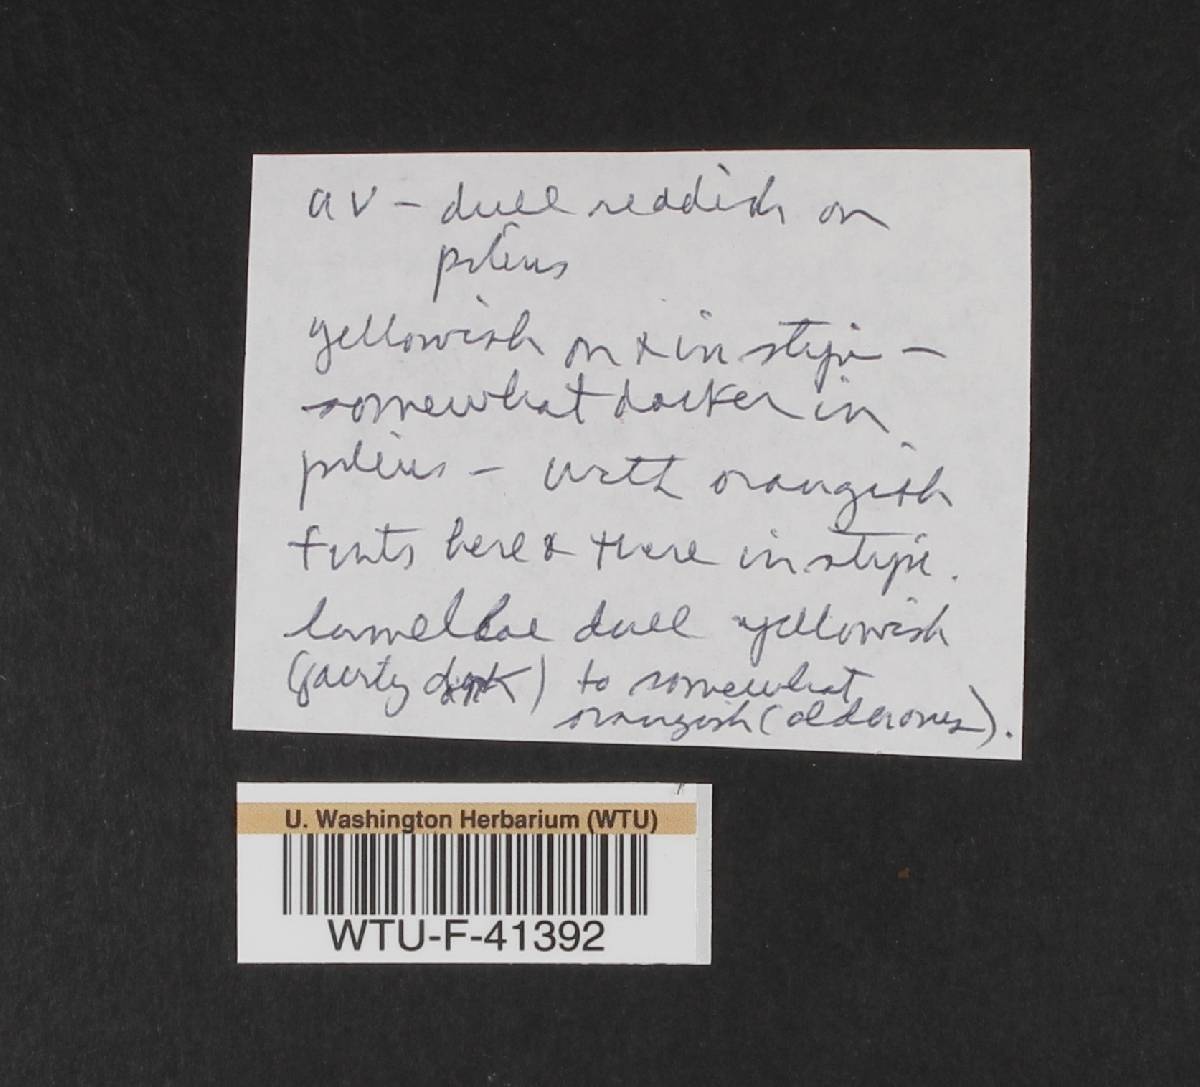 av – dull reddish on
pileus
yellowish on & in stipe –
somewhat darker in
pileus – with orangish
tints here & there in stipe.
lamellae dull yellowish
(fairly dark) to somewhat
orangish (older ones).
U. Washington Herbarium (WTU)
WTU-F-41392